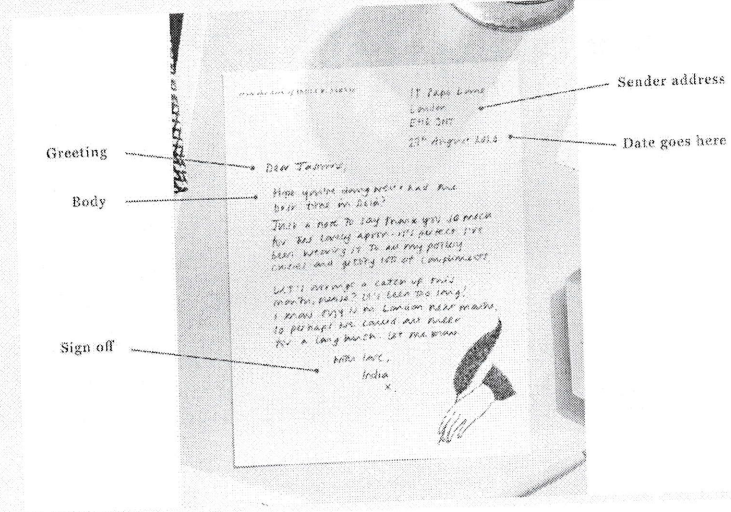 Sender address
Date goes here
Greeting
Body
Sign off
London
27th August 2020
Dear Jasmine,
Hope you're doing well + had the
best time in Asia?
Just a note to say thank you so much
for the lovely apron - it's perfect. I've
been wearing it to all my pottery
classes and getting lots of compliments.
Let's arrange a catch up this
month, please? It's been too long!
I know is in London next month,
so perhaps we could all meet
for a long lunch. Let me know.
With love,
India
x.